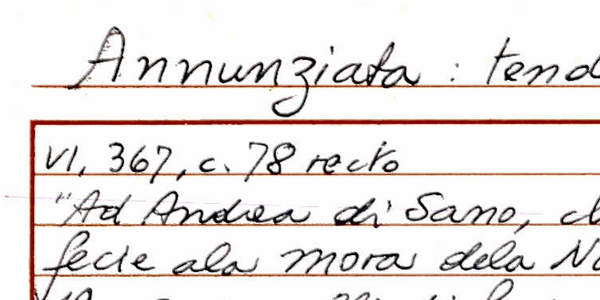 Annunziata : tend
VI, 367, c. 78 recto
"Ad Andrea di Sano, ch
fecie ala mora dela No